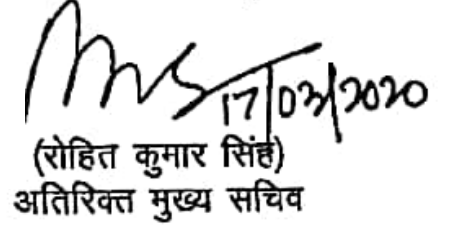 17/02/2020
(रोहित कुमार सिंह)
अतिरिक्त मुख्य सचिव